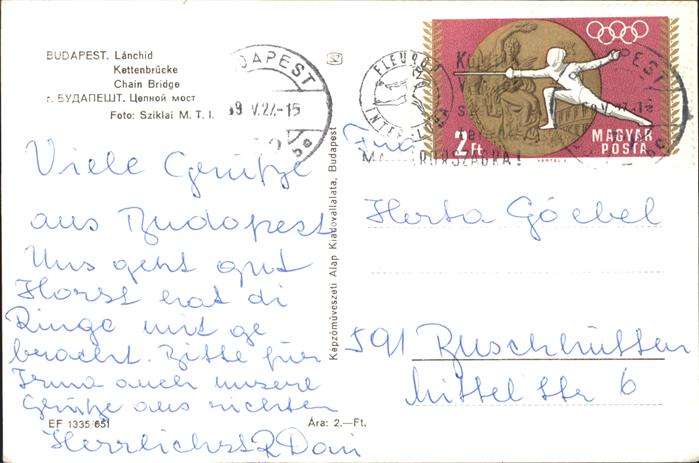 BUDAPEST. Lánchid
Kettenbrücke
Chain Bridge
г. БУДАПЕШТ. Цепной мост
Foto: Sziklai M. T. I.
BUDAPEST
69 V.27.-15
FLEUROP
INTERFLORA
2 Ft
MAGYAR
POSTA
Viele Grüße
aus Budapest
Uns geht gut
Horst hat di
Ringe mit ge
bracht. Bitte für
Irma auch unsere
Grüße aus richten
Herrlichst
EF 1335/651
Ára: 2.—Ft.
Képzőművészeti Alap Kiadóvállalata, Budapest
Frau
Herta Göebel
591 Buschhütten
Mittel Str 6